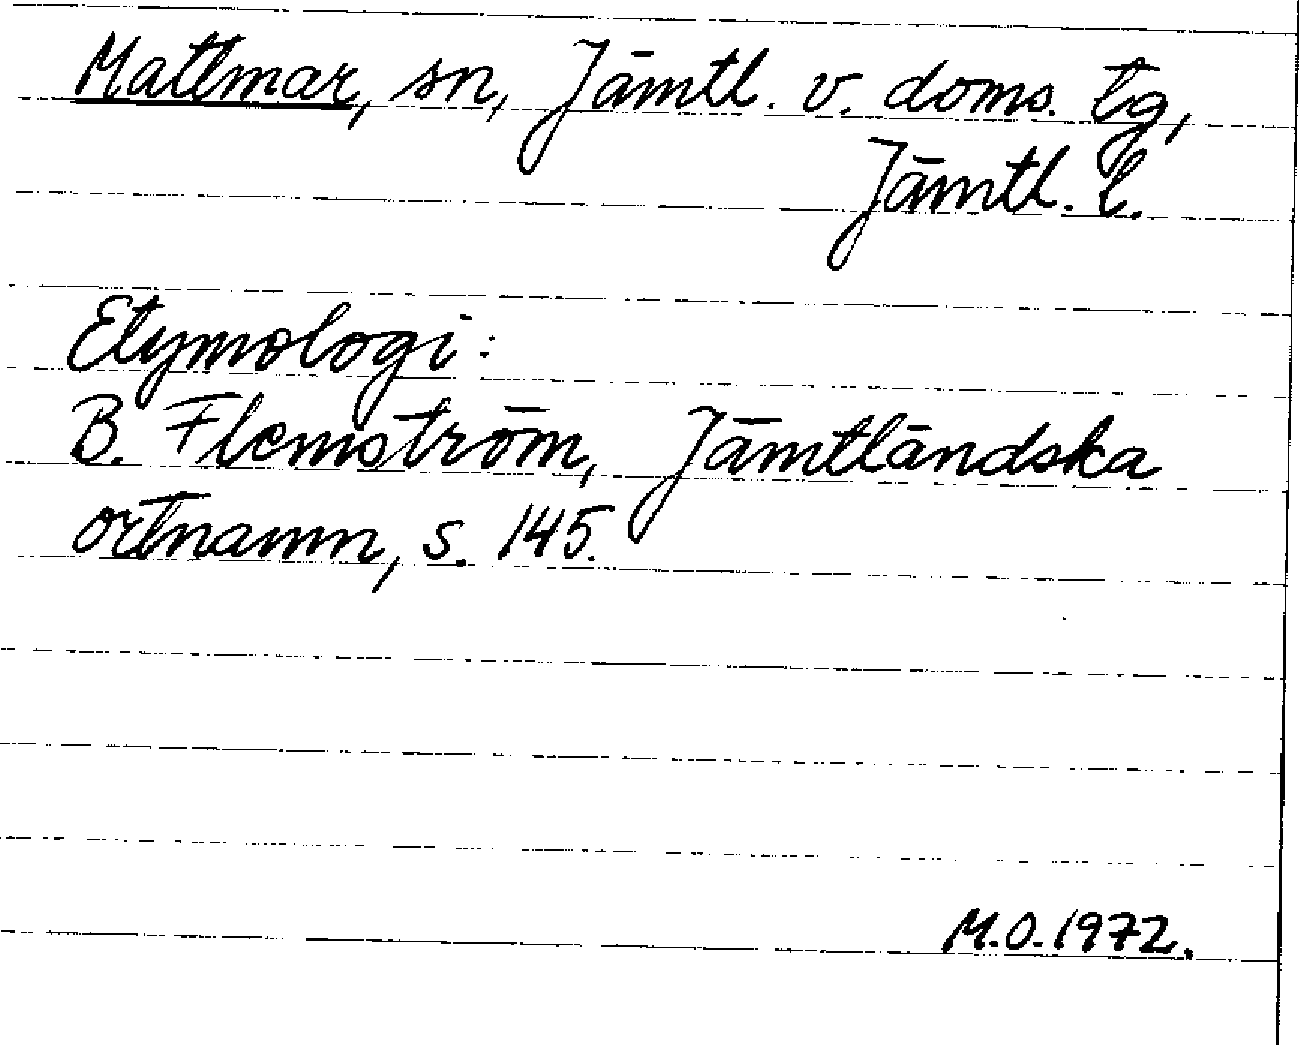 Mattmar, sn, Jämtl. v. doms. tg,
Jämtl. l.
Etymologi:
B. Flemström, Jämtländska
ortnamn, s. 145.
M.O. 1972.